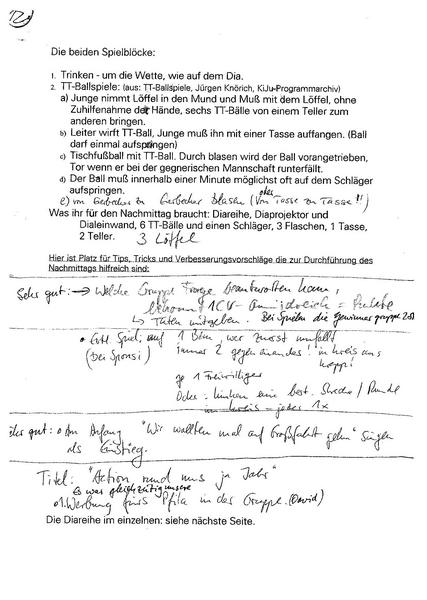 12
Die beiden Spielblöcke:
1. Trinken - um die Wette, wie auf dem Dia.
2. TT-Ballspiele: (aus: TT-Ballspiele, Jürgen Knörich, KiJu-Programmarchiv)
a) Junge nimmt Löffel in den Mund und Muß mit dem Löffel, ohne
Zuhilfenahme der Hände, sechs TT-Bälle von einem Teller zum
anderen bringen.
b) Leiter wirft TT-Ball, Junge muß ihn mit einer Tasse auffangen. (Ball
darf einmal aufspringen)
c) Tischfußball mit TT-Ball. Durch blasen wird der Ball vorangetrieben,
Tor wenn er bei der gegnerischen Mannschaft runterfällt.
d) Der Ball muß innerhalb einer Minute möglichst oft auf dem Schläger
aufspringen.
oder
e) von zu blasen (Von Tasse zu Tasse!!)
Was ihr für den Nachmittag braucht: Diareihe, Diaprojektor und
Dialeinwand, 6 TT-Bälle und einen Schläger, 3 Flaschen, 1 Tasse,
2 Teller. 3 Löffel
Hier ist Platz für Tips, Tricks und Verbesserungsvorschläge die zur Durchführung des
Nachmittags hilfreich sind:
Sehr gut: → Welche Gruppe Frage beantworten kann,
bekommt 1 =
↳ Tüten mitgeben. Bei Spielen die gewinner gruppe
• Evtl. Spiel, auf 1 Bein, wer zuerst umfällt
(bei Sponsi) immer 2 gegeneinander! im kreis uns
1 Freiwilliger
Oder: hinken eine best. Strecke / Runde
im kreis = jeder 1x
Sehr gut: • Am Anfang "Wir wollten mal auf Großfahrt gehn" singen
als Einstieg.
Titel: "Action rund ums Jahr"
Es war gleichzeitig unsere
1. Werbung fürs Pfila in der Gruppe. (David)
Die Diareihe im einzelnen: siehe nächste Seite.